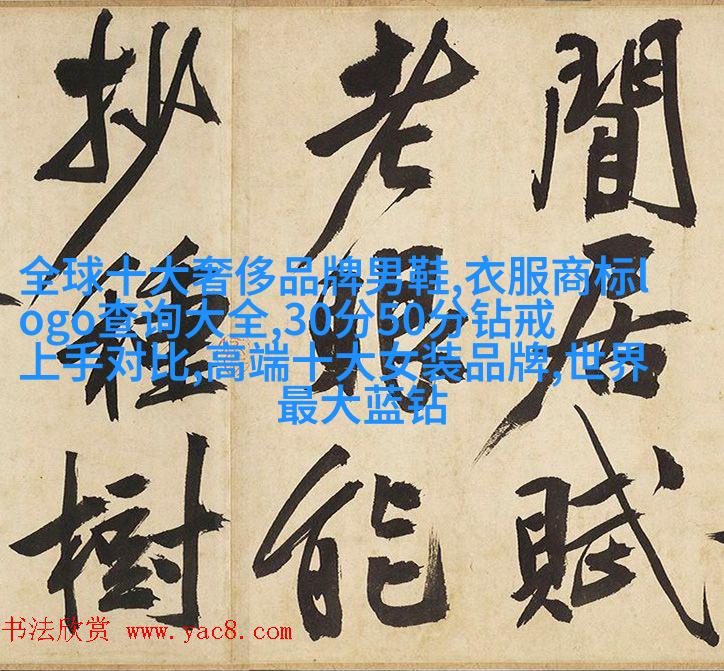 閒居賦
老眼能
抄種樹
全球十大奢侈品牌男鞋,衣服商标l
ogo查询大全,30分50分钻戒
上手对比,高端十大女装品牌,世界
最大蓝钻
书法欣赏 www.yac8.com